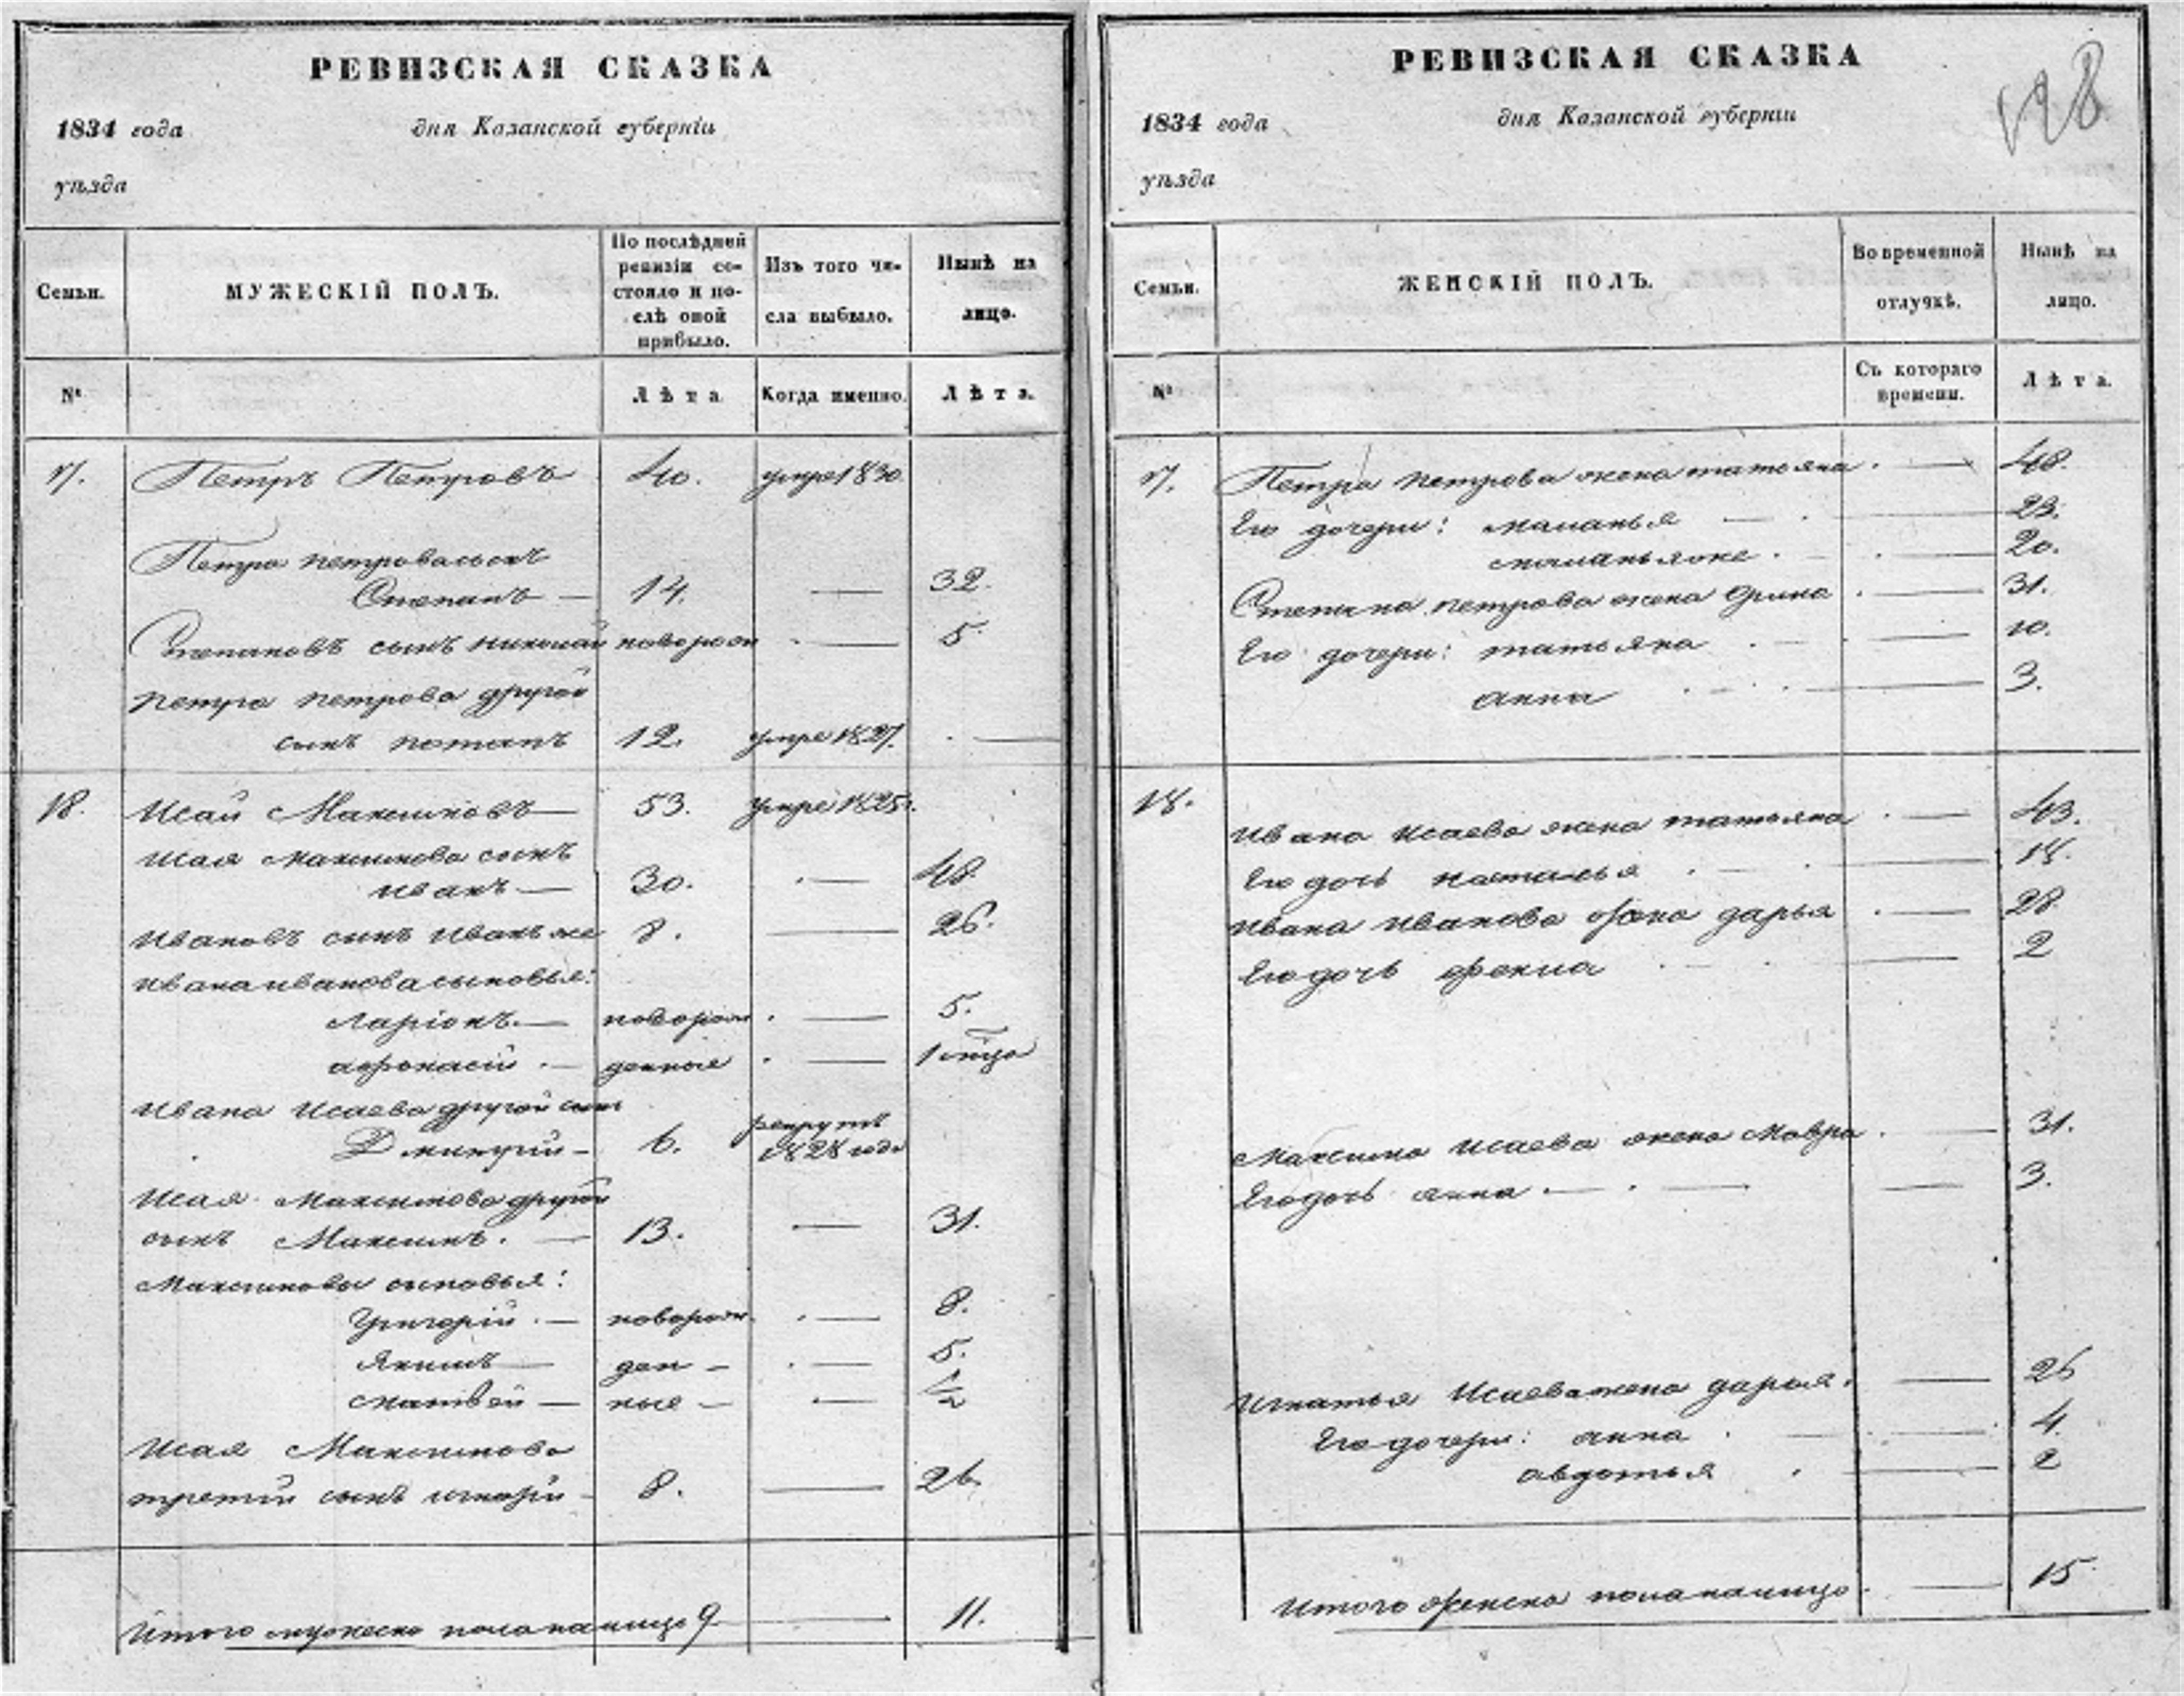 РЕВИЗСКАЯ СКАЗКА
1834 года дня Казанской губерніи
уѣзда
Семьи. МУЖЕСКІЙ ПОЛЪ. По послѣдней ревизіи состояло и послѣ оной прибыло. Изъ того числа выбыло. Нынѣ на лицо.
№ Лѣта Когда именно. Лѣта.
17. Петръ Петровъ 40. умре 1830
Петра петрова сынъ
Степанъ — 14. — 32.
Степановъ сынъ николай новорож — 5.
петра петрова другой
сынъ потапъ 12. умре 1827. —
18. Исай Максимовъ — 53. умре 1825.
Исая максимова сынъ
иванъ — 30. — 48
ивановъ сынъ иванъ же 8. — 26.
ивана иванова сыновья:
ларіонъ. — новорож — 5.
афонасій — денные —
ивана исаева другой сынъ
Дмитрій — 6. рекрутъ 1828 года
Исая Максимова другой
сынъ Максимъ. — 13. — 31.
Максимовы сыновья:
Григорій — новорож — 8.
Якимъ — ден — — 5.
матвей — ные — — ½
Исая Максимова
третій сынъ 8. — 26.
Итого мужеска пола налицо 9 — 11.
РЕВИЗСКАЯ СКАЗКА
128
1834 года дня Казанской губерніи
уѣзда
Семьи. ЖЕНСКІЙ ПОЛЪ. Во временной отлучкѣ. Нынѣ на лицо.
№ Съ котораго времени. Лѣта.
17. Петра петрова жена татьяна — 48.
Его дочери: маланья — 23.
маланья же — 20.
Степана петрова жена Орина — 31.
Его дочери: татьяна — 10.
анна — 3.
18.
ивана исаева жена татьяна — 43.
Его дочь наталья — 18.
ивана иванова жена дарья — 28
Его дочь фекла — 2
Максима исаева жена Мавра — 31.
Его дочь анна — 3.
игнатья Исаева жена дарья. — 26
Его дочери: анна — 4.
авдотья — 2
Итого женска пола налицо — 15